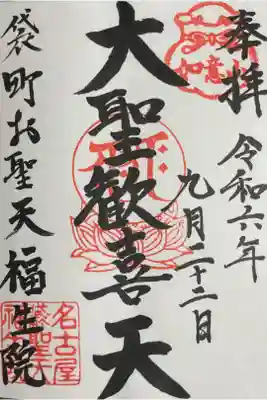 奉拝
令和六年
九月二十二日
大聖歓喜天
袋町お聖天
福生院
如意
名古屋
袋聖天